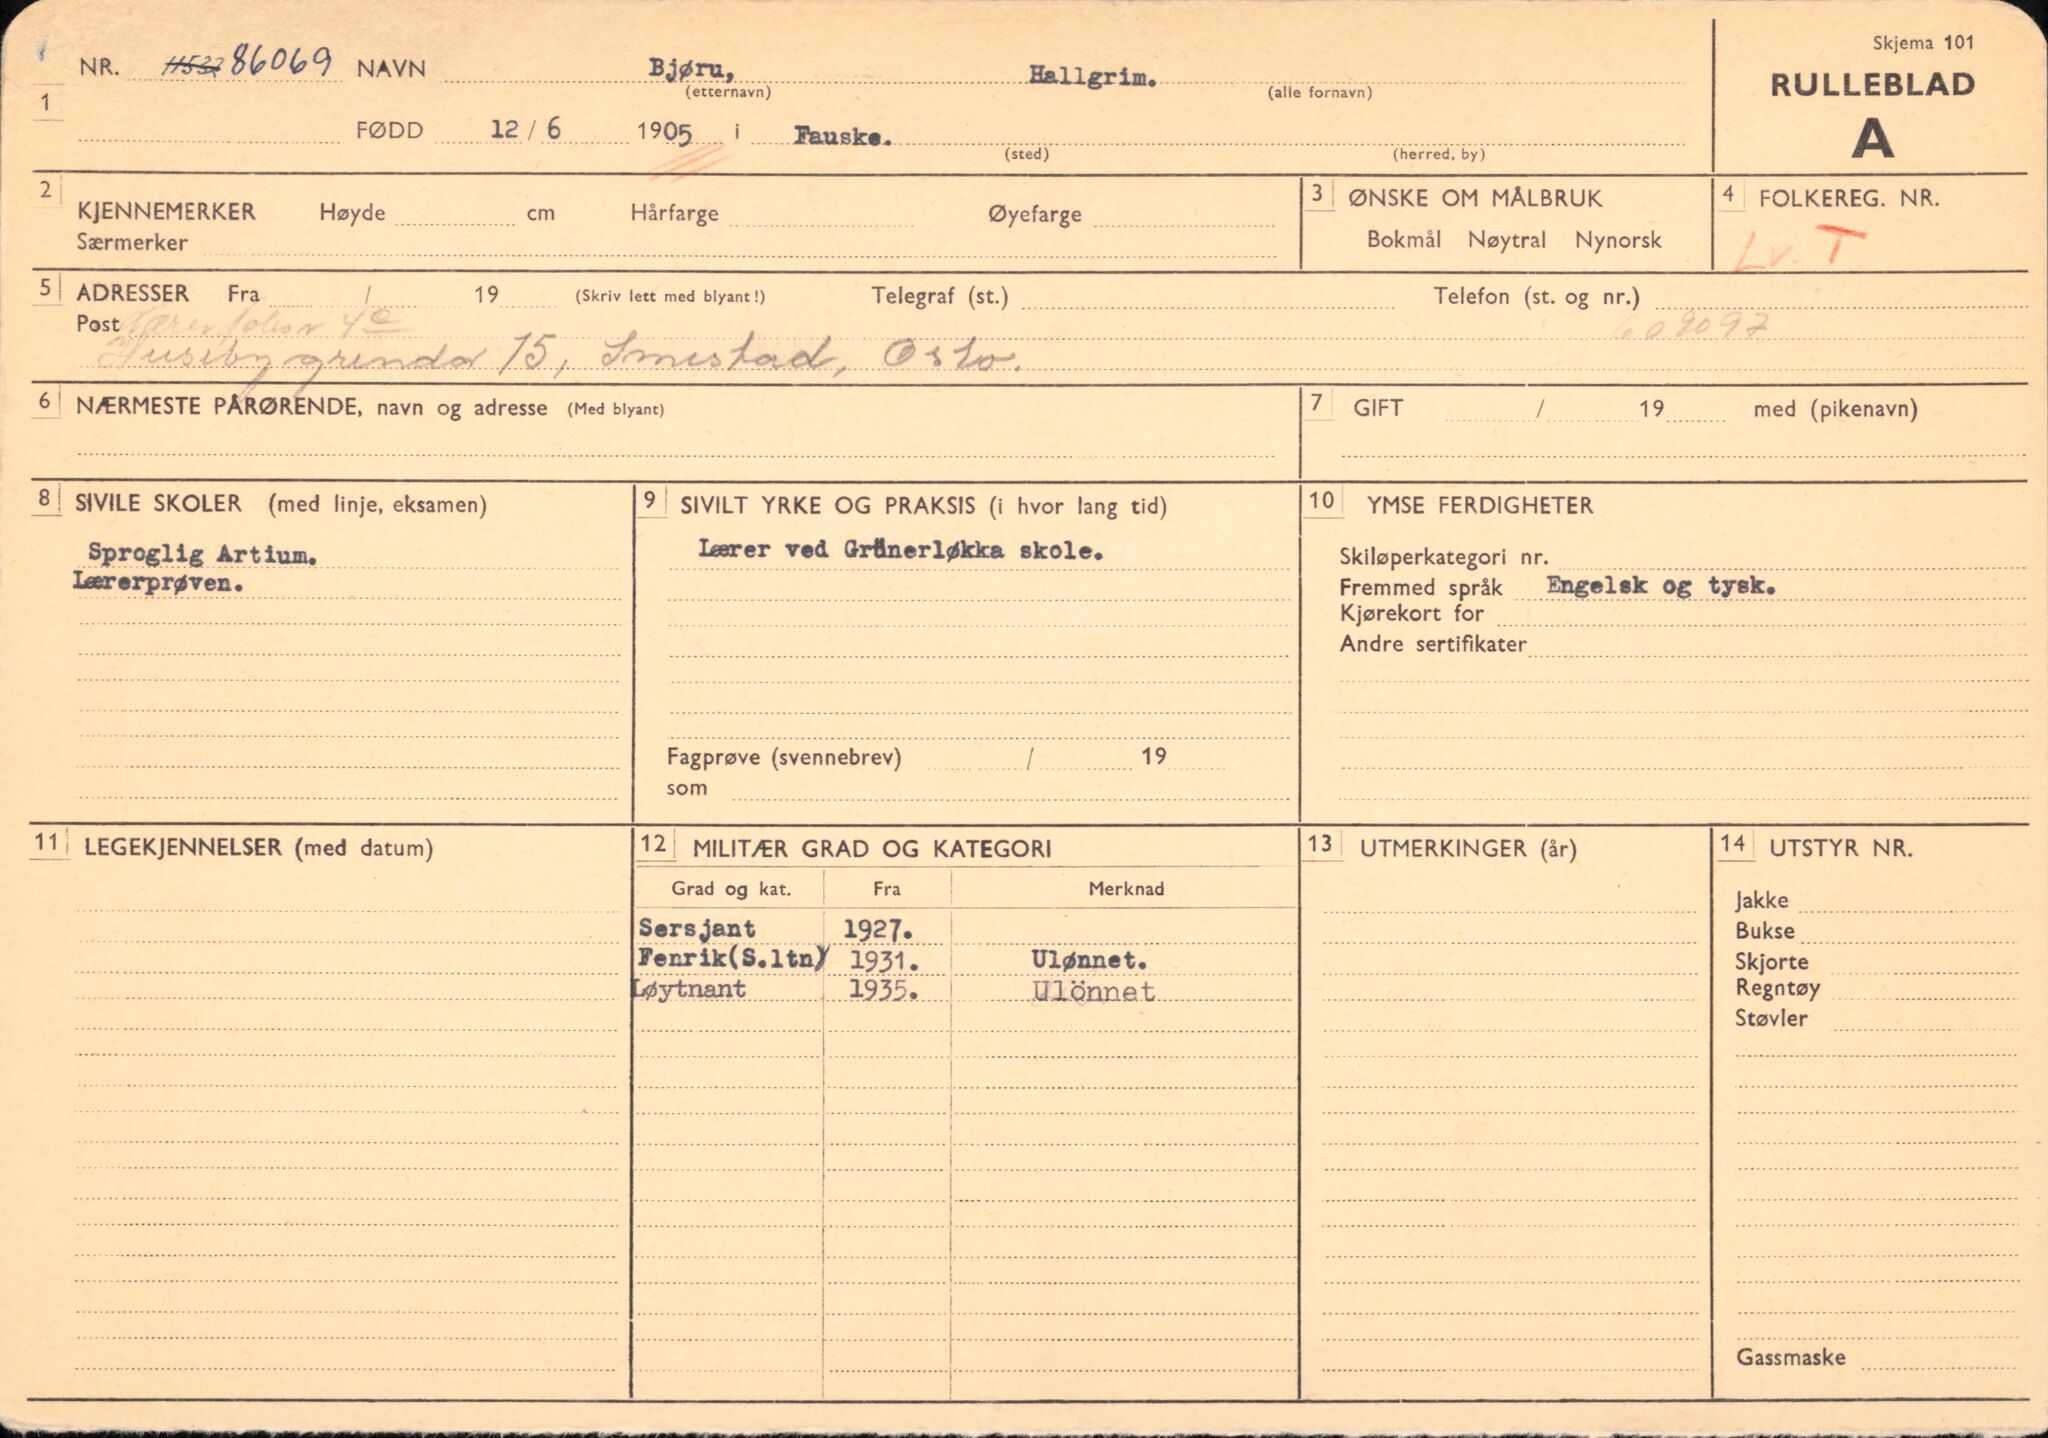 Skjema 101
RULLEBLAD
A
1
NR. 86069 NAVN Bjøru, Hallgrim.
(etternavn) (alle fornavn)
FØDD 12 / 6 1905 i Fauske.
(sted) (herred, by)
2 KJENNEMERKER Høyde cm Hårfarge Øyefarge
Særmerker
3 ØNSKE OM MÅLBRUK
Bokmål Nøytral Nynorsk
4 FOLKEREG. NR.
Lv. T
5 ADRESSER Fra / 19 (Skriv lett med blyant!) Telegraf (st.) Telefon (st. og nr.)
Post 4c 609097
Husebygrenda 15, Smestad, Oslo.
6 NÆRMESTE PÅRØRENDE, navn og adresse (Med blyant)
7 GIFT / 19 med (pikenavn)
8 SIVILE SKOLER (med linje, eksamen)
Sproglig Artium.
Lærerprøven.
9 SIVILT YRKE OG PRAKSIS (i hvor lang tid)
Lærer ved Grünerløkka skole.
Fagprøve (svennebrev) / 19
som
10 YMSE FERDIGHETER
Skiløperkategori nr.
Fremmed språk Engelsk og tysk.
Kjørekort for
Andre sertifikater
11 LEGEKJENNELSER (med datum)
12 MILITÆR GRAD OG KATEGORI
Grad og kat. Fra Merknad
Sersjant 1927.
Fenrik(S.ltn) 1931. Ulønnet.
Løytnant 1935. Ulönnet
13 UTMERKINGER (år)
14 UTSTYR NR.
Jakke
Bukse
Skjorte
Regntøy
Støvler
Gassmaske